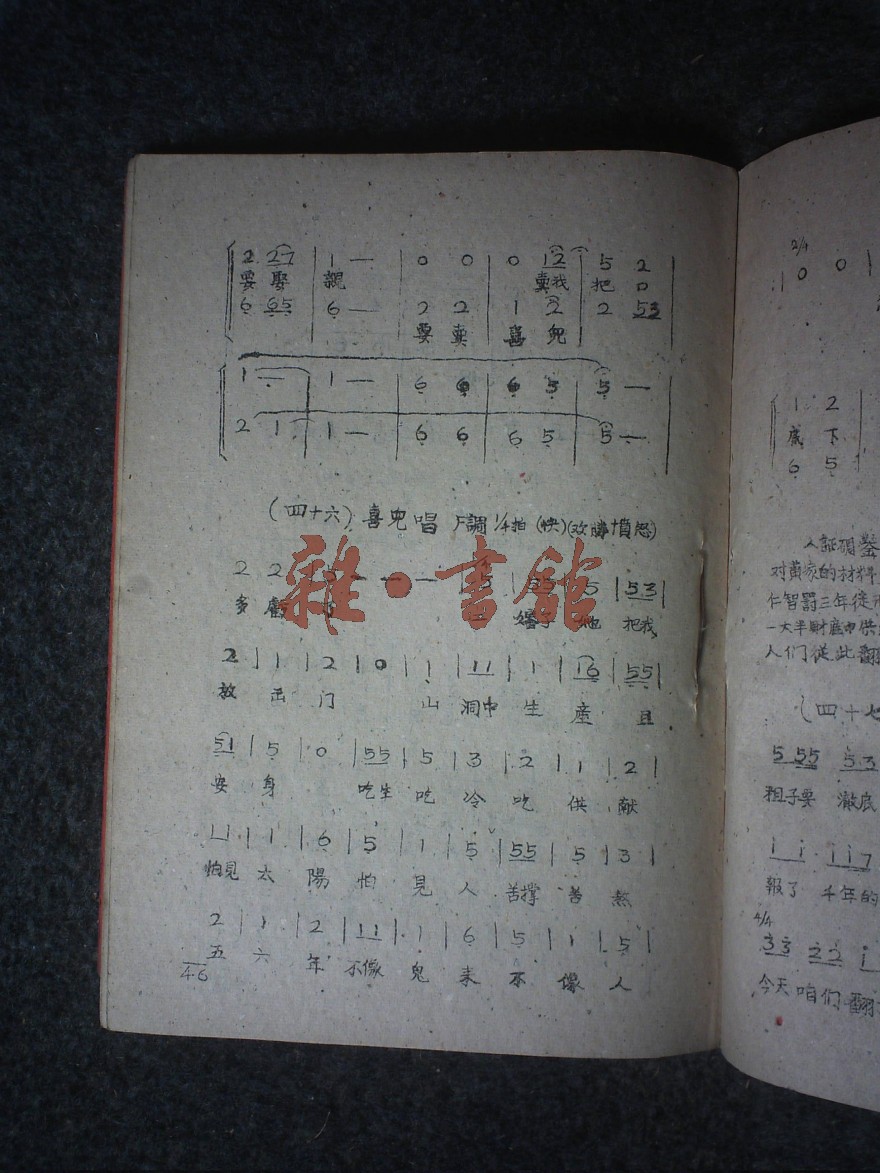 2 27 | 1 — | 0 0 | 0 12 | 5 2 |
要娶 親 賣我 把口
6 65 | 6 — | 2 2 | 1 2 | 2 53 |
要賣喜兒
1 — | 1 — | 6 6 | 6 5 | 5 — |
2 1 | 1 — | 6 6 | 6 5 | 5 — |
(四十六) 喜兒唱 F調 1/4拍 (快)
雜·書館
多虧 把我
2 | 1 | 2 | 0 | 1 | 11 | 1 | 16 | 55 |
放出门 山洞中生產且
51 | 5 | 0 | 55 | 5 | 3 | 2 | 1 | 2 |
安身 吃生吃冷吃供献
11 | 1 | 6 | 5 | 1 | 5 | 55 | 5 | 3 |
怕見太陽怕見人苦撑苦熬
2 | 1 | 2 | 11 | 1 | 6 | 5 | 1 | 5 |
五六年不像鬼来不像人
46
2/4
0 0 |
1 2
底下
6 5
对黄家的材料
仁智罰三年徒
人们從此翻
(四十七
5 55 53
租子要澈底
報了千年的
4/4
33 22 1
今天咱们翻